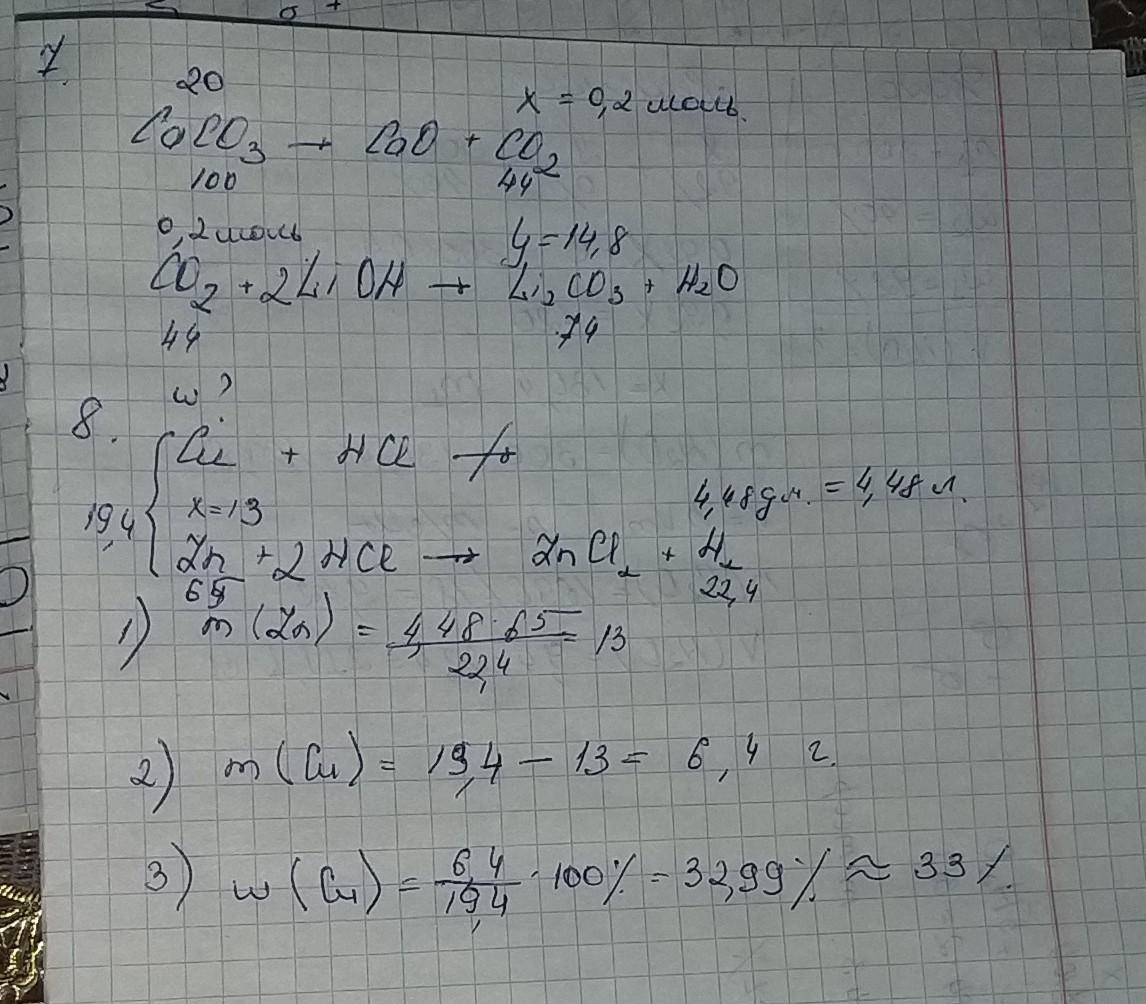 7.
20
x = 0,2 моль.
CaCO3 → CaO + CO2
100 44
0,2 моль y = 14,8
CO2 + 2LiOH → Li2CO3 + H2O
44 74
w?
8. Cu + HCl ↛
19,4 x = 13 4,48 дм. = 4,48 л.
Zn + 2HCl → ZnCl2 + H2
65 22,4
1) m (Zn) = 4,48 · 65 / 22,4 = 13
2) m (Cu) = 19,4 - 13 = 6,4 г.
3) w (Cu) = 6,4 / 19,4 · 100% = 32,99% ≈ 33%.